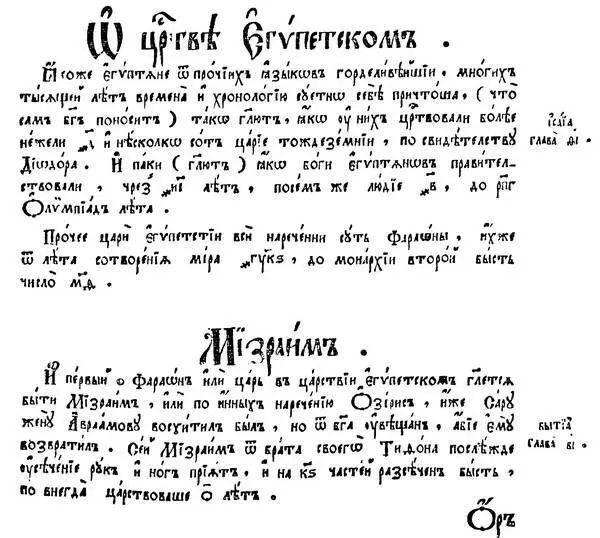 Ѿ црⷭ҇твѣ Єгѵпетскомъ .
И соже єгѵптѧне ѿ прочїихъ ꙗзыковъ горделивѣйшїи , многихъ
тысѧщей лѣтъ времена и хронологїю суетнѡ себѣ причтоша , ( что
самъ бг҃ъ поноситъ ) такѡ гл҃ютъ , ꙗкѡ у нихъ цр҃ствовали болѣе
нежели и нѣсколкѡ сотъ царїє тождеземнїи , по свидѣтелству
Дїѡдора . И паки ( гл҃ютъ ) ꙗкѡ боги єгѵптѧновъ правител–
ствовали , чрез лѣтъ , посемъ же людїє , до рп҃г
Ѻлѵмпїадъ лѣта .
исаїа
глава ѳ҃і .
Прочее цари єгѵпетстїи вси нареченни суть Фараѡны , ихже
ѿ лѣта сотворенїѧ мїра , до монархїи второй бысть
число м҃д .
Мїзраимъ .
И первый Фараѡнъ или царь въ царствїи єгѵпетскомъ гл҃етсѧ
быти Мїзраим , или по инныхъ нареченїю Ѻзерисъ , иже Сару
жену Авраамову восхитилъ былъ , но ѿ бг҃а увѣщан , абїе єму
возвратилъ . Сей Мїзраимъ ѿ брата своегѡ Тифона послѣжде
усѣченїе рукъ и ногъ прїѧтъ , и на к҃ѕ частей разсѣченъ бысть ,
по внегда царствоваше ѻ҃ лѣтъ .
бытїа
глава в҃і .
Ѻръ